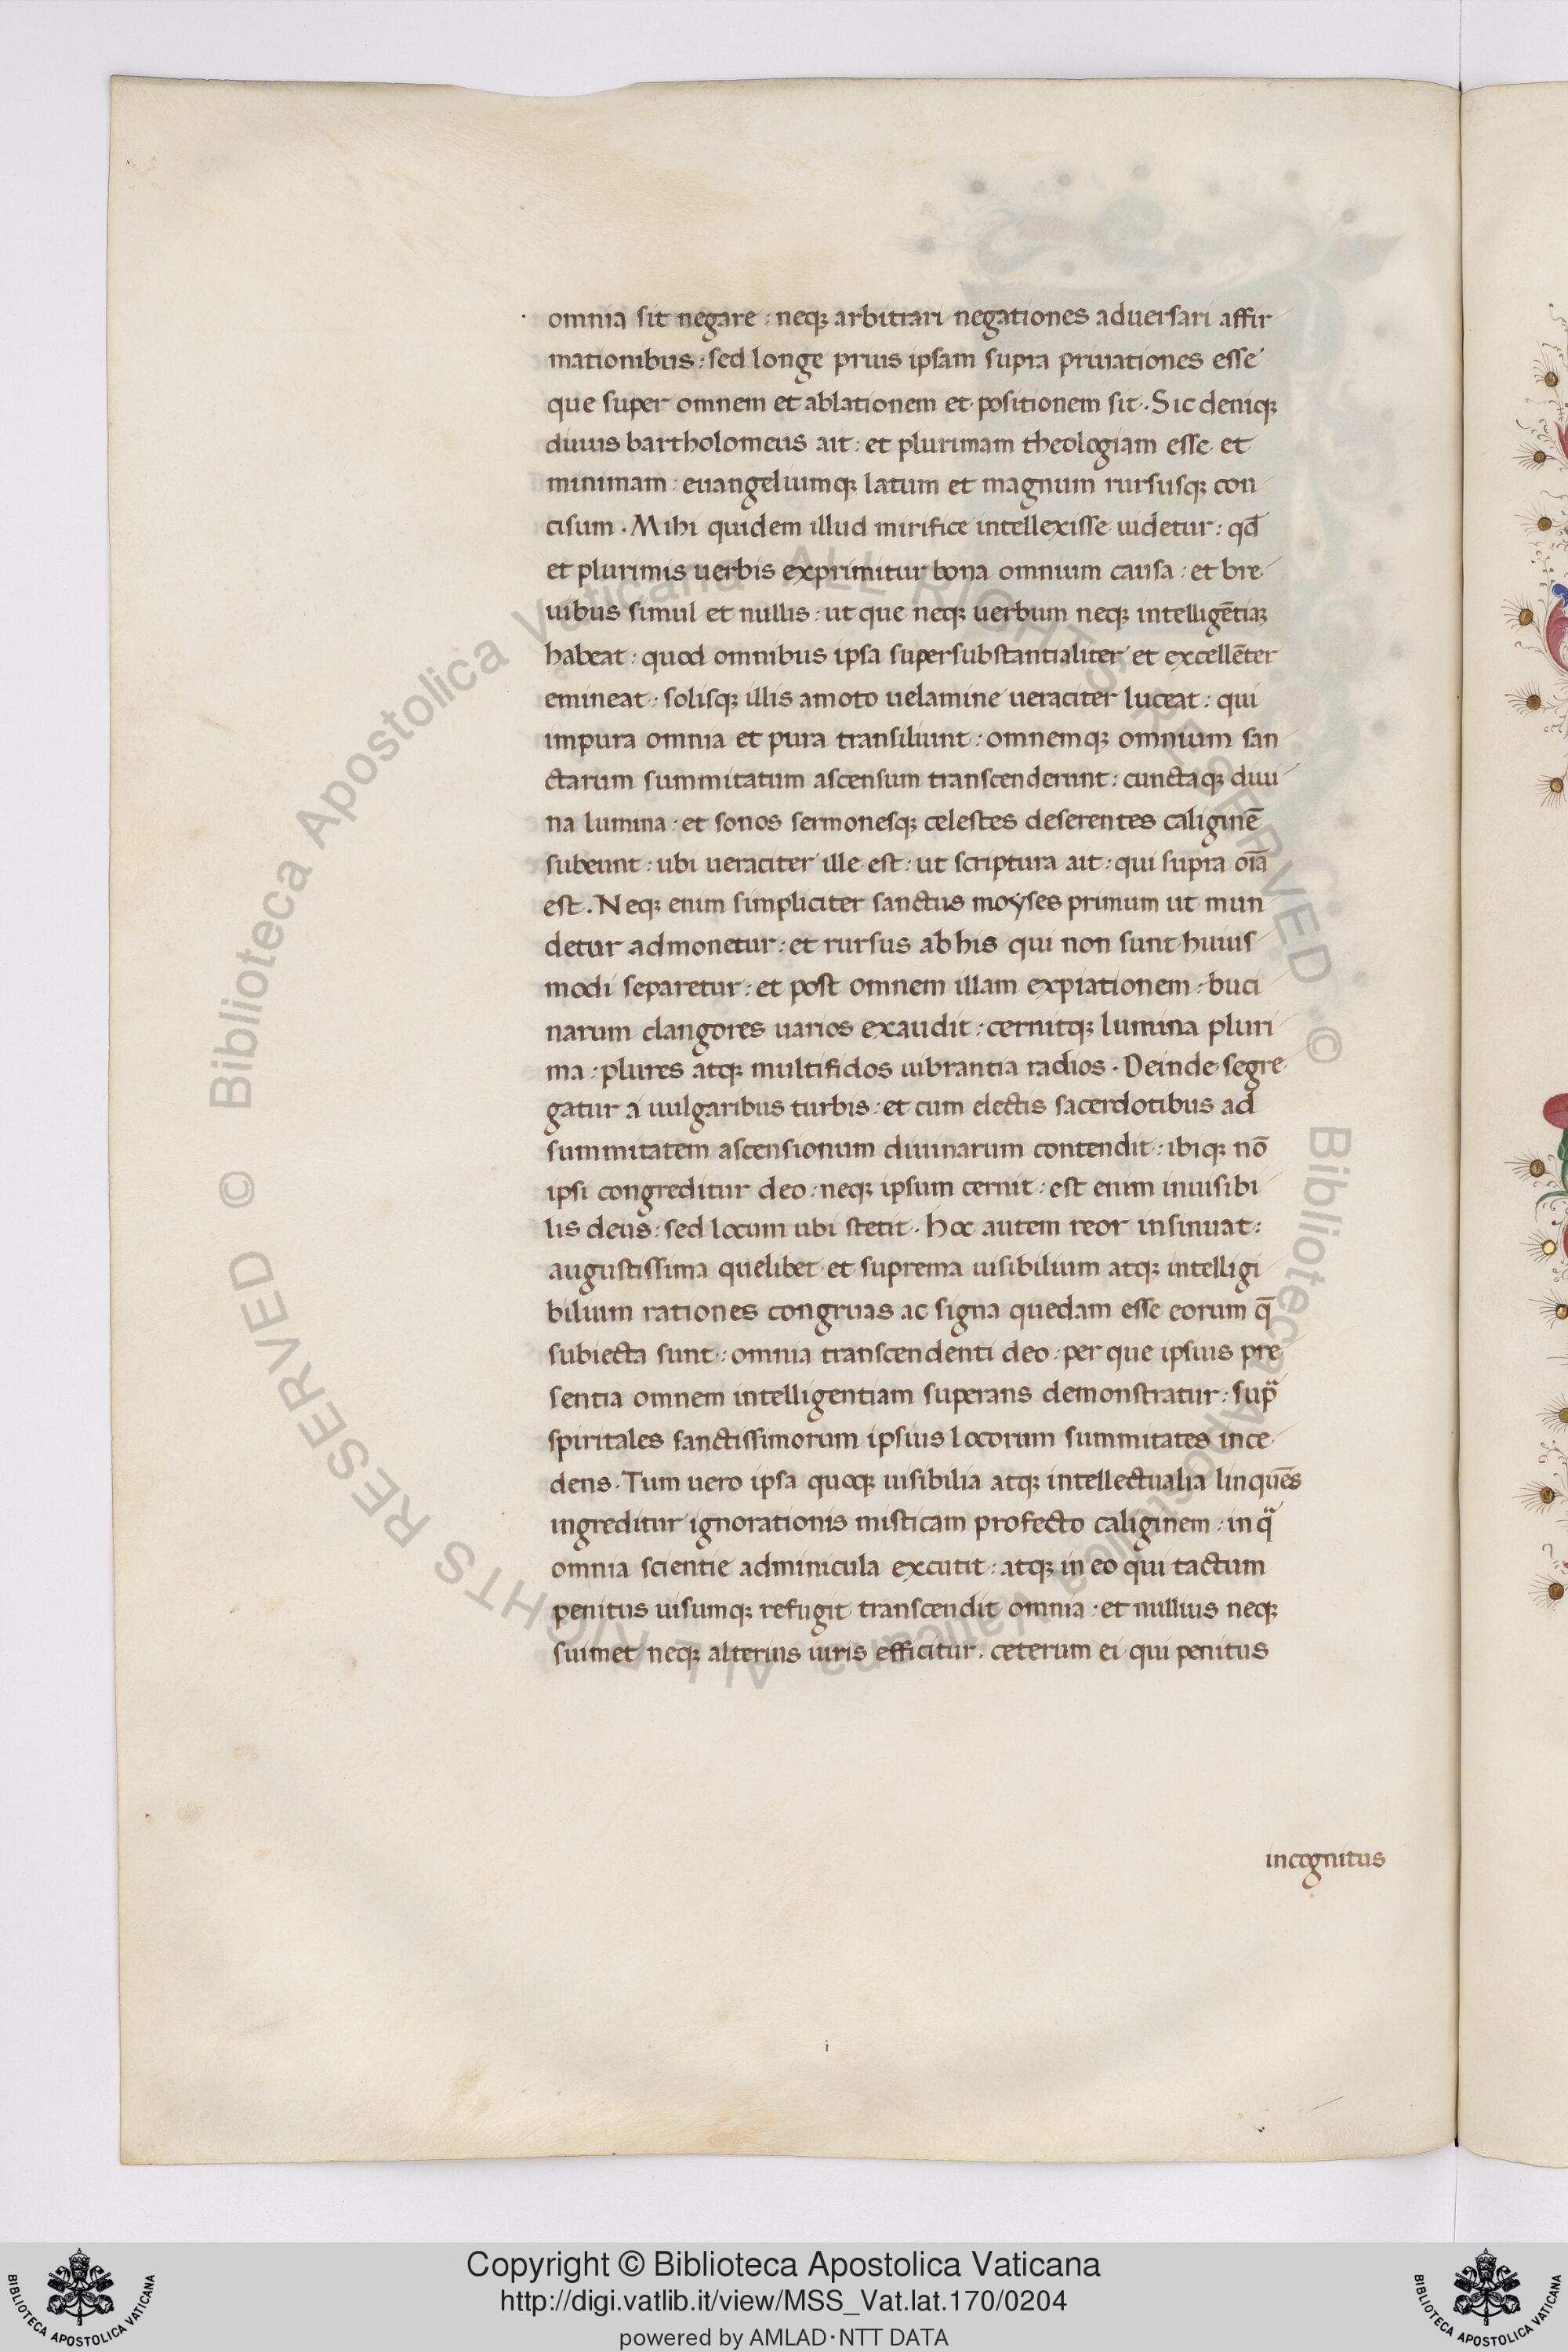 omnia sit negare : neqꝫ arbitrari negationes aduersari affir
mationibus : sed longe prius ipsam supra priuationes esse
que super omnem et ablationem et positionem sit . Sic deniqꝫ
diuus bartholomeus ait : et plurimam theologiam esse et
minimam : euangeliumqꝫ latum et magnum rursusqꝫ con
cisum . Mihi quidem illud mirifice intellexisse uidetur : qđ
et plurimis uerbis exprimitur bona omnium causa : et bre
uibus simul et nullis : ut que neqꝫ uerbum neqꝫ intelligētiaꝫ
habeat : quod omnibus ipsa supersubstantialiter et excellēter
emineat : solisqꝫ illis amoto uelamine ueraciter luceat : qui
impura omnia et pura transiliunt : omnemqꝫ omnium san
ctarum summitatum ascensum transcenderunt : cunctaqꝫ diui
na lumina : et sonos sermonesqꝫ celestes deserentes caliginē
subeunt : ubi ueraciter ille est : ut scriptura ait : qui supra oīa
est . Neqꝫ enim simpliciter sanctus moyses primum ut mun
detur admonetur : et rursus ab his qui non sunt huius
modi separetur : et post omnem illam expiationem : buci
narum clangores uarios exaudit : cernitqꝫ lumina pluri
ma : plures atqꝫ multifidos uibrantia radios . Deinde segre
gatur a uulgaribus turbis : et cum electis sacerdotibus ad
summitatem ascensionum diuinarum contendit : ibiqꝫ nō
ipsi congreditur deo : neqꝫ ipsum cernit : est enim inuisibi
lis deus : sed locum ubi stetit . hoc autem reor insinuat :
augustissima quelibet et suprema uisibilium atqꝫ intelligi
bilium rationes congruas ac signa quedam esse eorum q̄
subiecta sunt : omnia transcendenti deo : per que ipsius pre
sentia omnem intelligentiam superans demonstratur : supᷓ
spiritales sanctissimorum ipsius locorum summitates ince
dens . Tum uero ipsa quoqꝫ uisibilia atqꝫ intellectualia linquēs
ingreditur ignorationis misticam profecto caliginem : in qᷓ
omnia scientie adminicula excutit : atqꝫ in eo qui tactum
penitus uisumqꝫ refugit transcendit omnia : et nullius neqꝫ
suimet neqꝫ alterius iuris efficitur . ceterum ei qui penitus
incognitus
i
© Biblioteca Apostolica Vaticana ALL RIGHTS RESERVED © Biblioteca Apostolica Vaticana ALL RIGHTS RESERVED
Copyright © Biblioteca Apostolica Vaticana
http://digi.vatlib.it/view/MSS_Vat.lat.170/0204
powered by AMLAD·NTT DATA
BIBLIOTECA APOSTOLICA VATICANA
BIBLIOTECA APOSTOLICA VATICANA